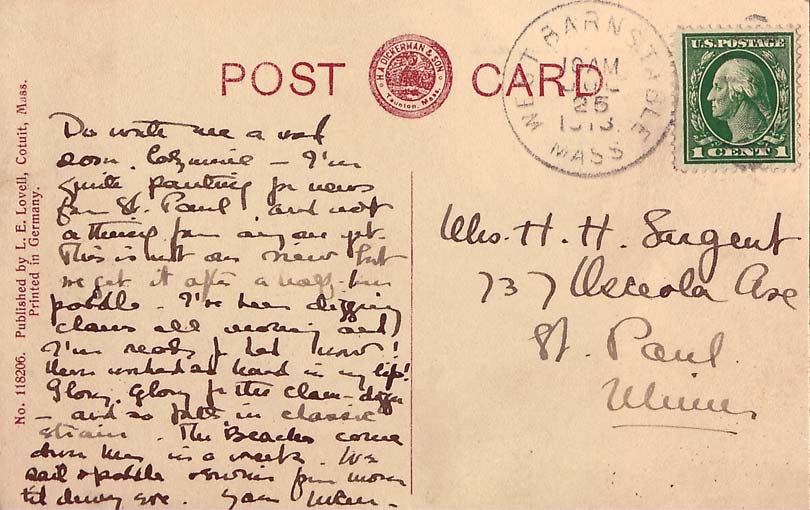 POST CARD
H.A. DICKERMAN & SON
Taunton, Mass.
WEST BARNSTABLE
MASS
25
1913
U.S. POSTAGE
1 CENT 1
No. 118206. Published by L. E. Lovell, Cotuit, Mass.
Printed in Germany.
Do write me a word
soon, – I'm
quite panting for news
from St. Paul, and not
a thing from anyone yet.
This is not our view but
we get it after a half-hour
paddle – I've been digging
clams all morning and
I'm ready for bed now!
Never worked so hard in my life!
Glory, Glory for the clam-digger
– and so forth in classic
strain. The Beaches come
down here in a week. We
sail & paddle from morn
til dewy eve.
Mrs. H. H. Sargent
737 Osceola Ave
St. Paul.
Minn.